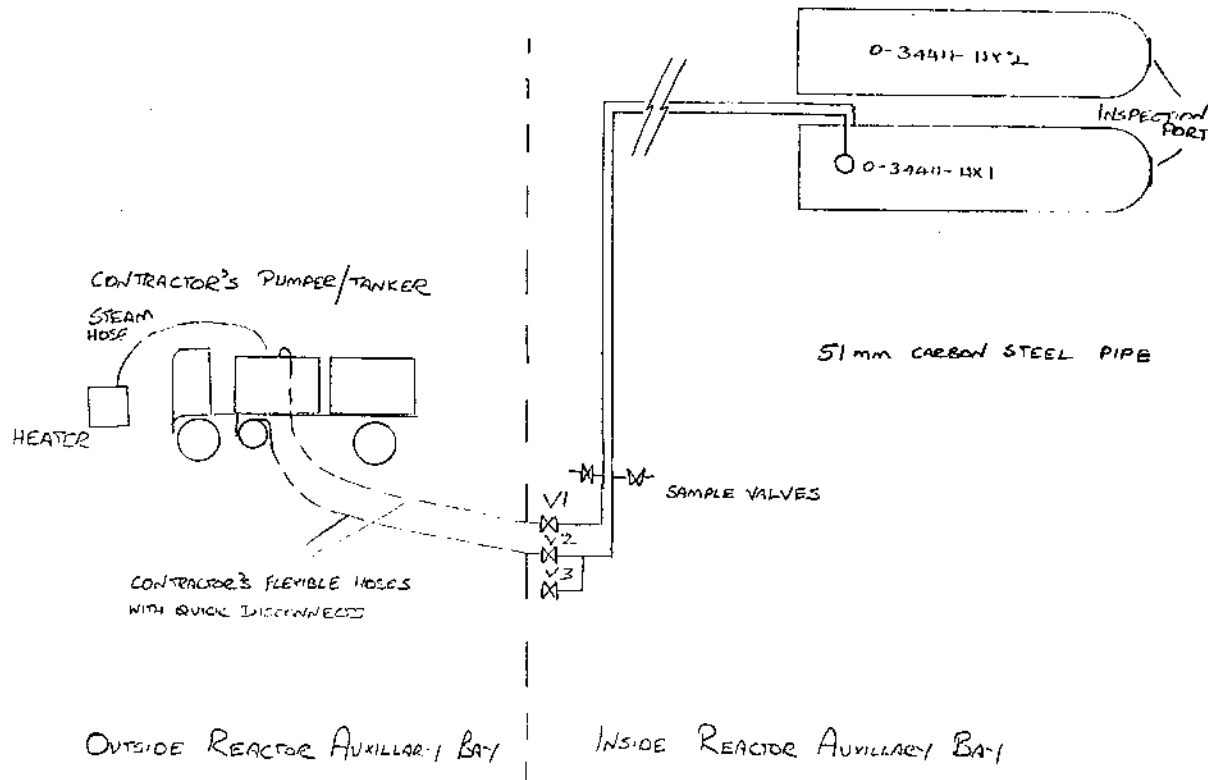 0-34411-HX2
INSPECTION
PORT
0-34411-HX1
CONTRACTOR'S PUMPER/TANKER
STEAM
HOSE
51 mm CARBON STEEL PIPE
HEATER
SAMPLE VALVES
V1
V2
V3
CONTRACTOR'S FLEXIBLE HOSES
WITH QUICK DISCONNECTS
OUTSIDE REACTOR AUXILLARY BAY
INSIDE REACTOR AUXILLARY BAY